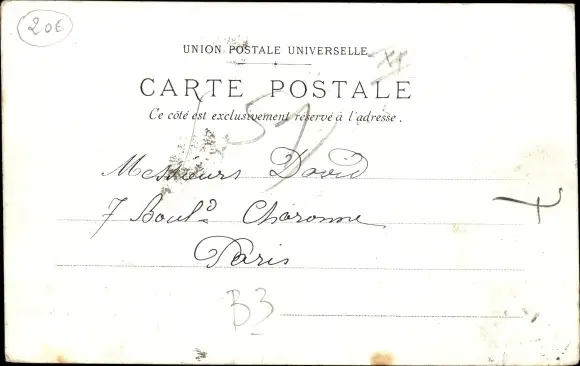 20€
UNION POSTALE UNIVERSELLE
CARTE POSTALE
Ce côté est exclusivement réservé à l'adresse.
51
Messieurs David
7 Boul.d Charonne
Paris
B3